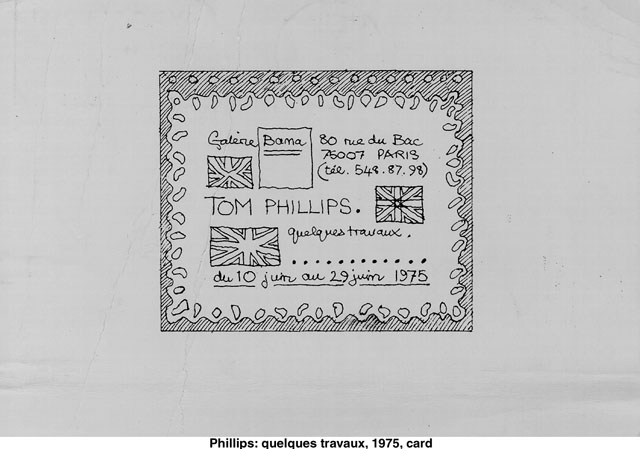 Galerie Bama 80 rue du Bac
75007 PARIS
(tél. 548.87.98)
TOM PHILLIPS.
quelques travaux.
............
du 10 juin au 29 juin 1975
Phillips: quelques travaux, 1975, card